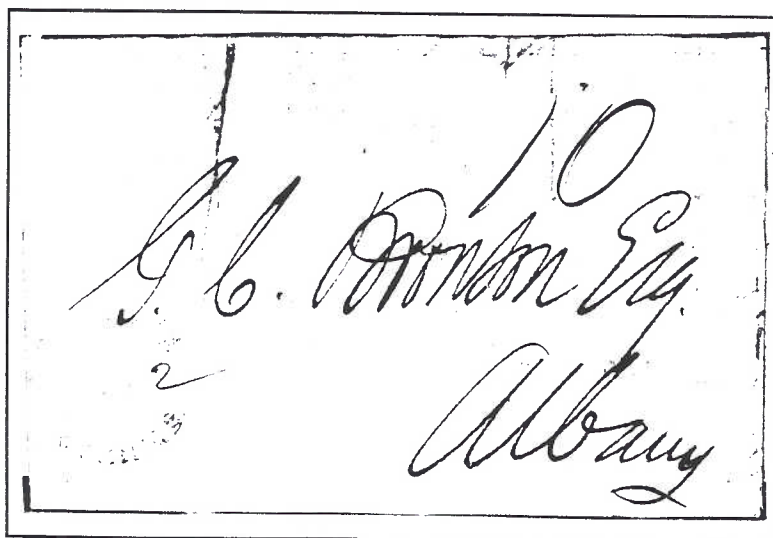 10
G. C. Bronson Esq.
2
Albany